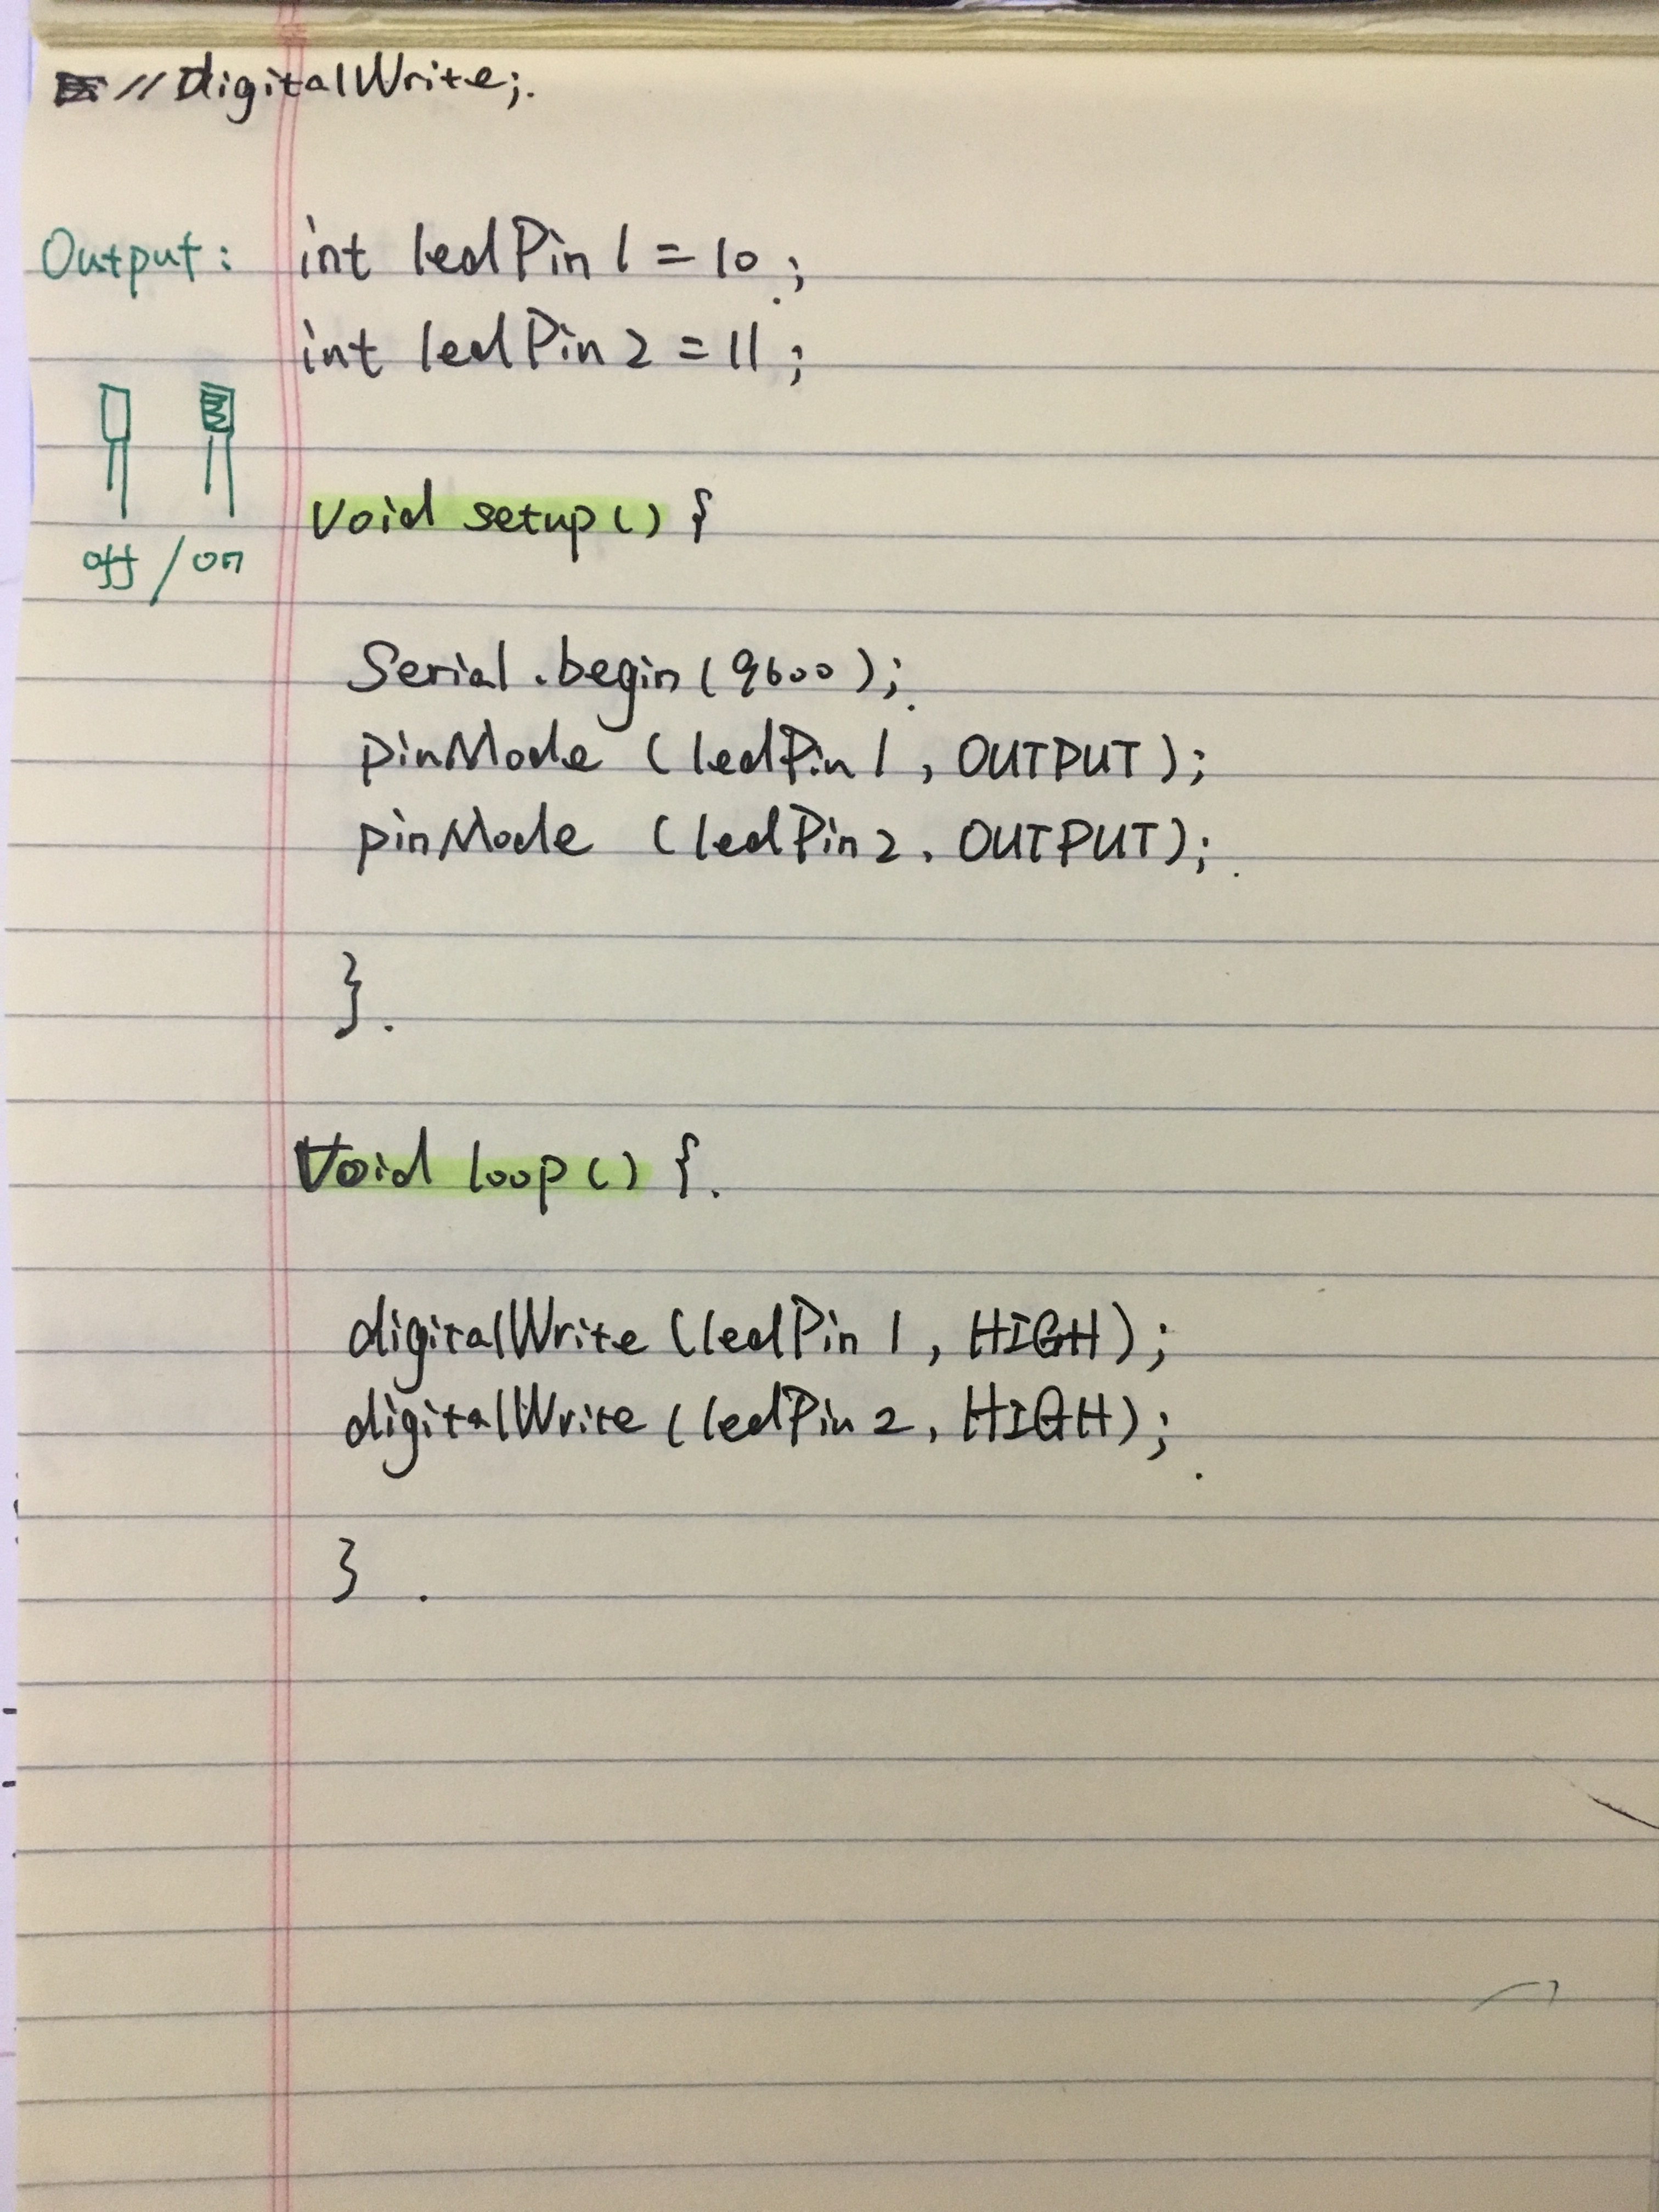 //digitalWrite;.
Output: int ledPin1 = 10;.
int ledPin2 = 11;
off / on
void setup() {
Serial.begin(9600);.
pinMode (ledPin1, OUTPUT);
pinMode (ledPin2, OUTPUT);.
}.
Void loop() {.
digitalWrite (ledPin1, HIGH);
digitalWrite (ledPin2, HIGH);.
} .